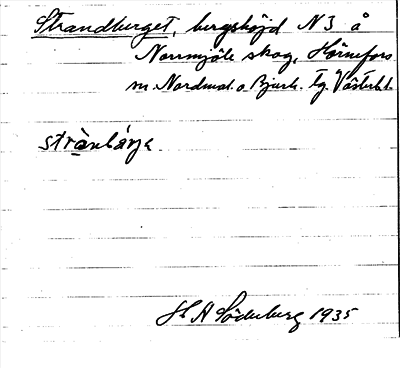 Strandberget, bergshöjd N3 å
Norrmjöle skog, Hörnefors
sn. Nordmal. o. Bjurh. tg. Västerb. l.
strànbárje
H A Söderberg 1935